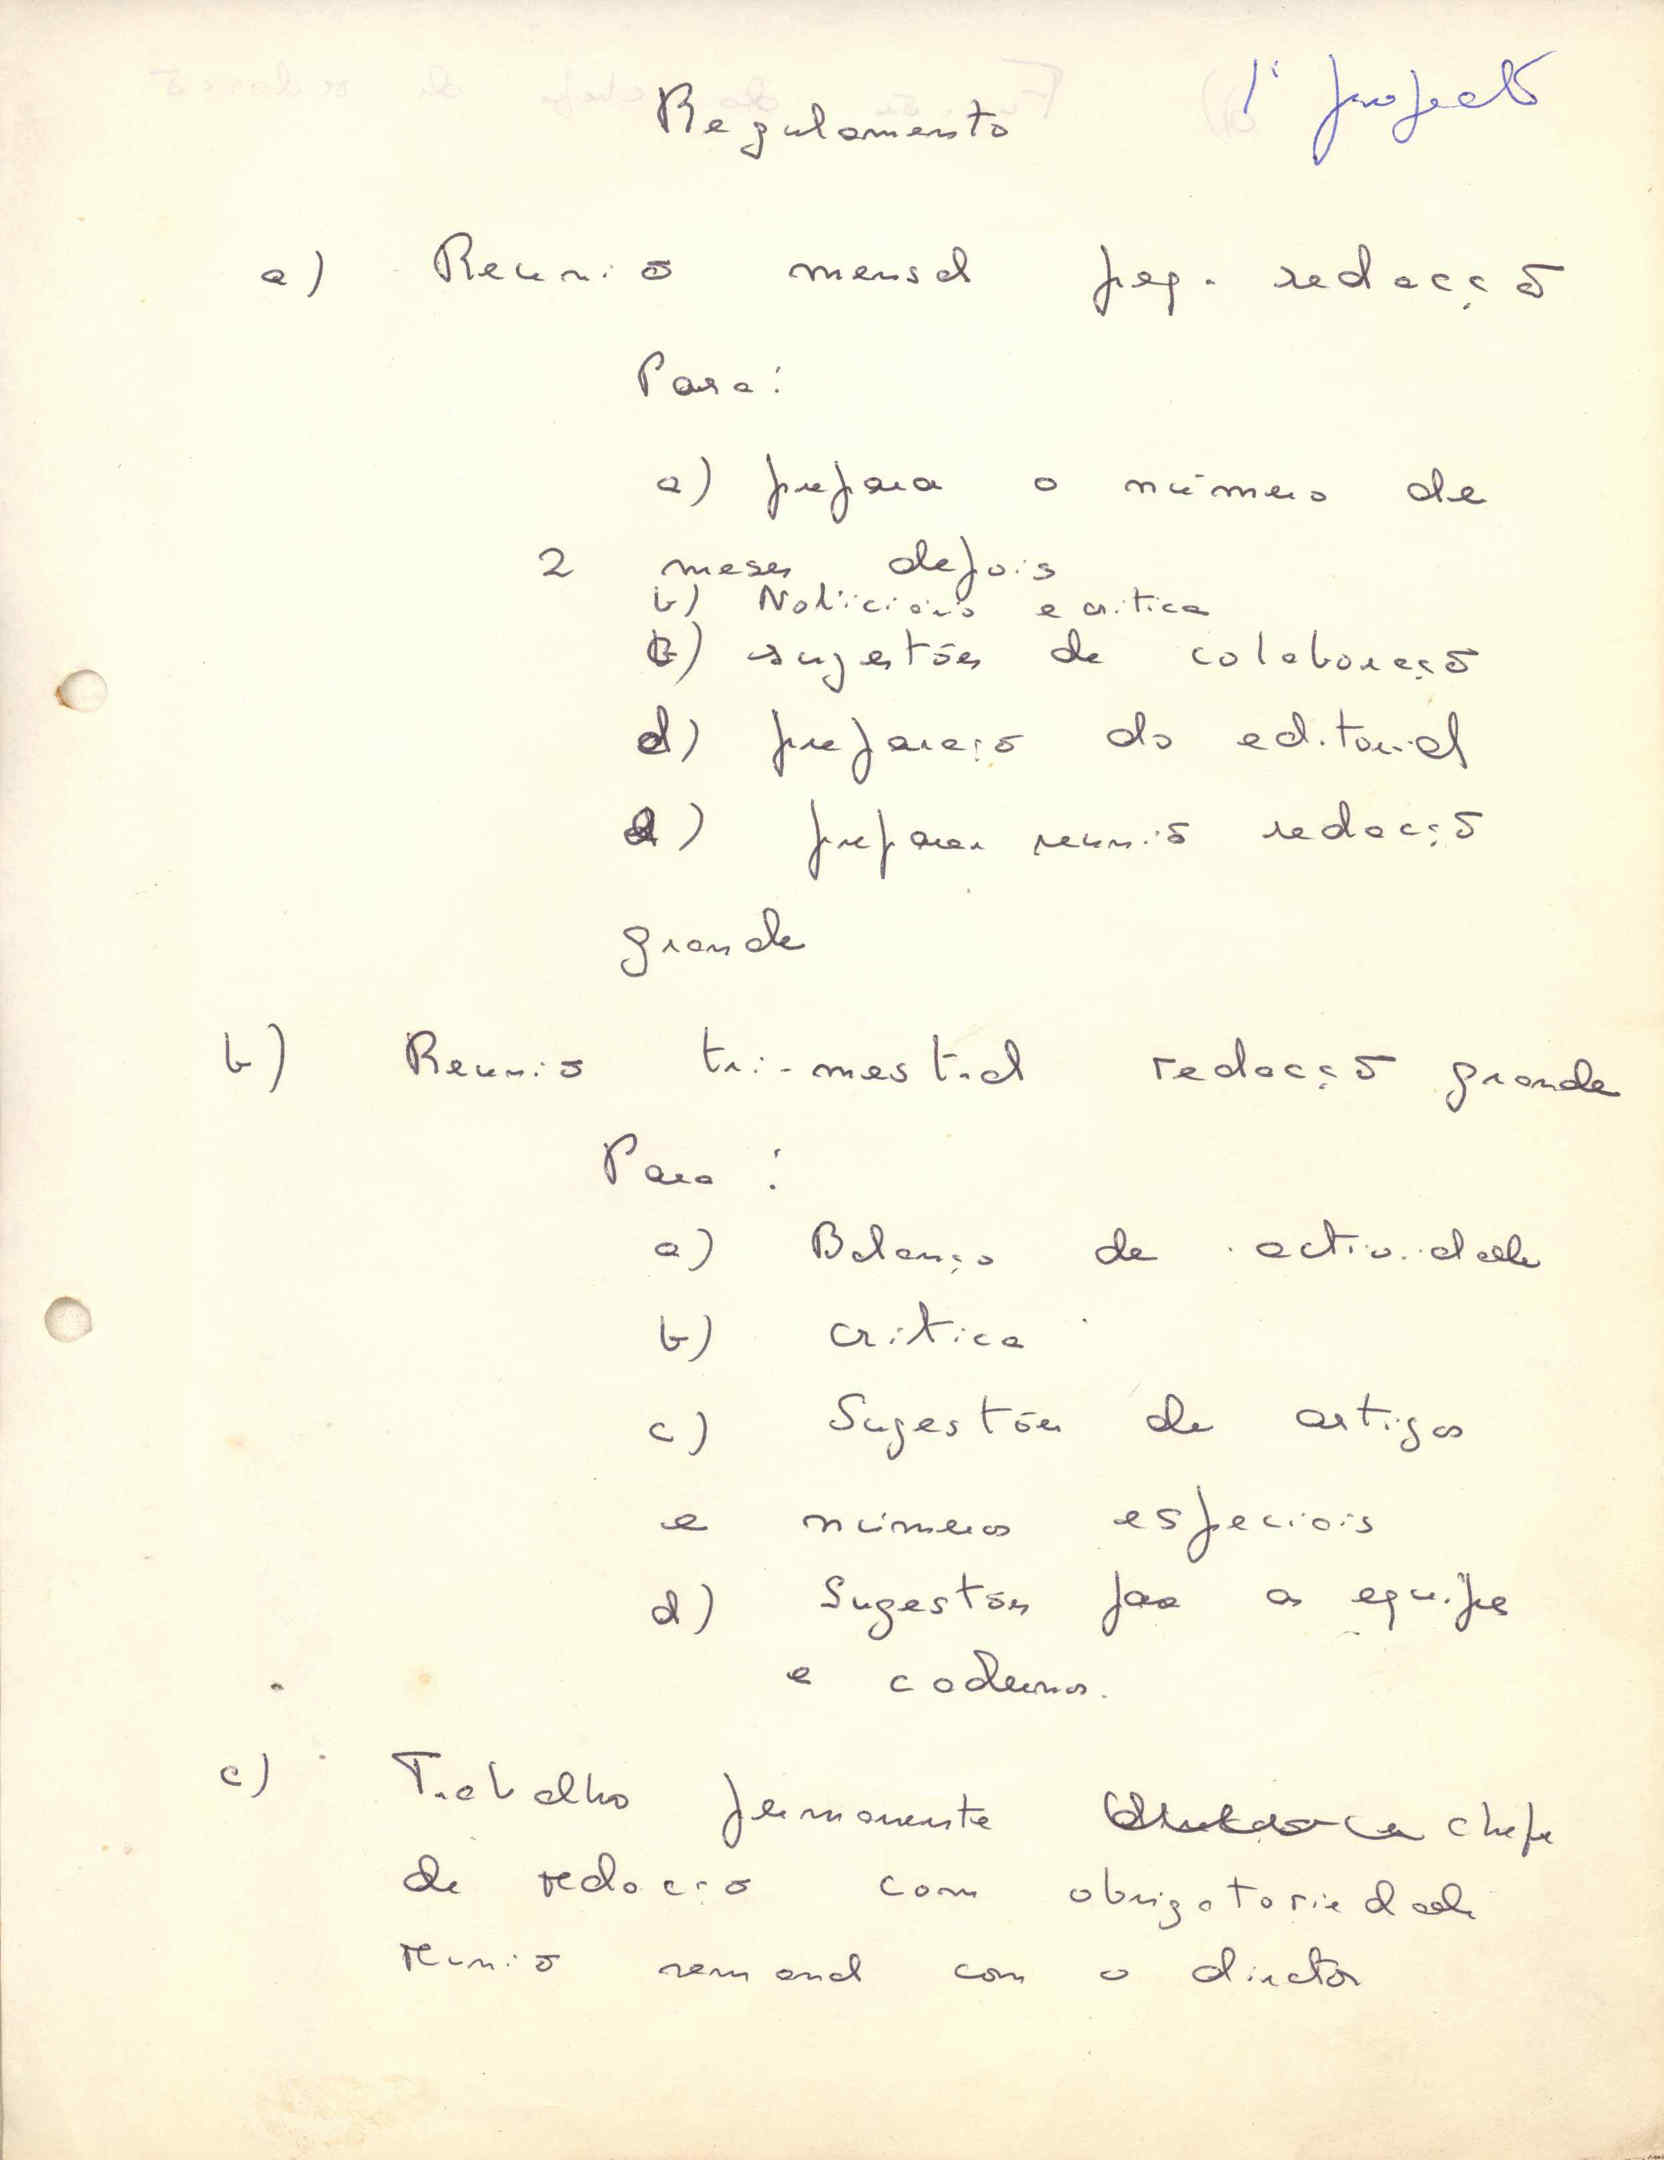 1º projecto
Regulamento
a) Reunião mensal peq. redacção
Para:
a) prepara o número de
2 meses depois
b) Noticiário e critica
c) sugestões de colaboração
d) preparação do editorial
e) preparar reunião redacção
grande
b) Reunião tri-mestral redacção grande
Para:
a) Balanço de actividade
b) critica
c) Sugestões de artigos
e números especiais
d) Sugestões para as equipes
e cadernos.
c) Trabalho permanente chefe
de redacção com obrigatoriedade
reunião semanal com o director